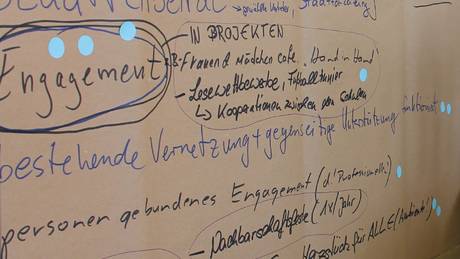 - IN PROJEKTEN
Engagement
z.B. Frauen & Mädchen Cafe "Hand in Hand"
- Lesewettbewerbe, Fußballtunier
↳ Kooperationen zwischen den Schulen
bestehende Vernetzung + gegenseitige Unterstützung funktioniert
personen gebundenes Engagement (d. "Professionelle")
- Nachbarschaftsfeste (1x/Jahr)
für ALLE